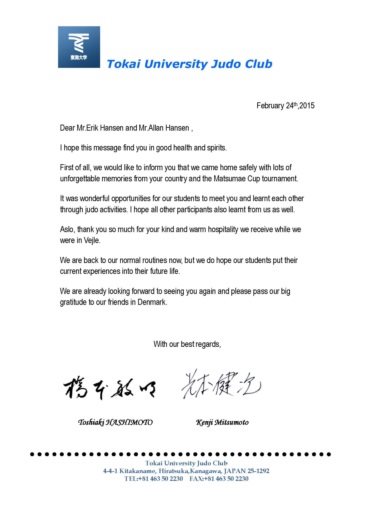 東海大学
Tokai University Judo Club
February 24th,2015
Dear Mr.Erik Hansen and Mr.Allan Hansen ,
I hope this message find you in good health and spirits.
First of all, we would like to inform you that we came home safely with lots of
unforgettable memories from your country and the Matsumae Cup tournament.
It was wonderful opportunities for our students to meet you and learnt each other
through judo activities. I hope all other participants also learnt from us as well.
Aslo, thank you so much for your kind and warm hospitality we receive while we
were in Vejle.
We are back to our normal routines now, but we do hope our students put their
current experiences into their future life.
We are already looking forward to seeing you again and please pass our big
gratitude to our friends in Denmark.
With our best regards,
橋本敏明 光本健次
Toshiaki HASHIMOTO Kenji Mitsumoto
Tokai University Judo Club
4-4-1 Kitakaname, Hiratsuka,Kanagawa, JAPAN 25-1292
TEL:+81 463 50 2230 FAX:+81 463 50 2230